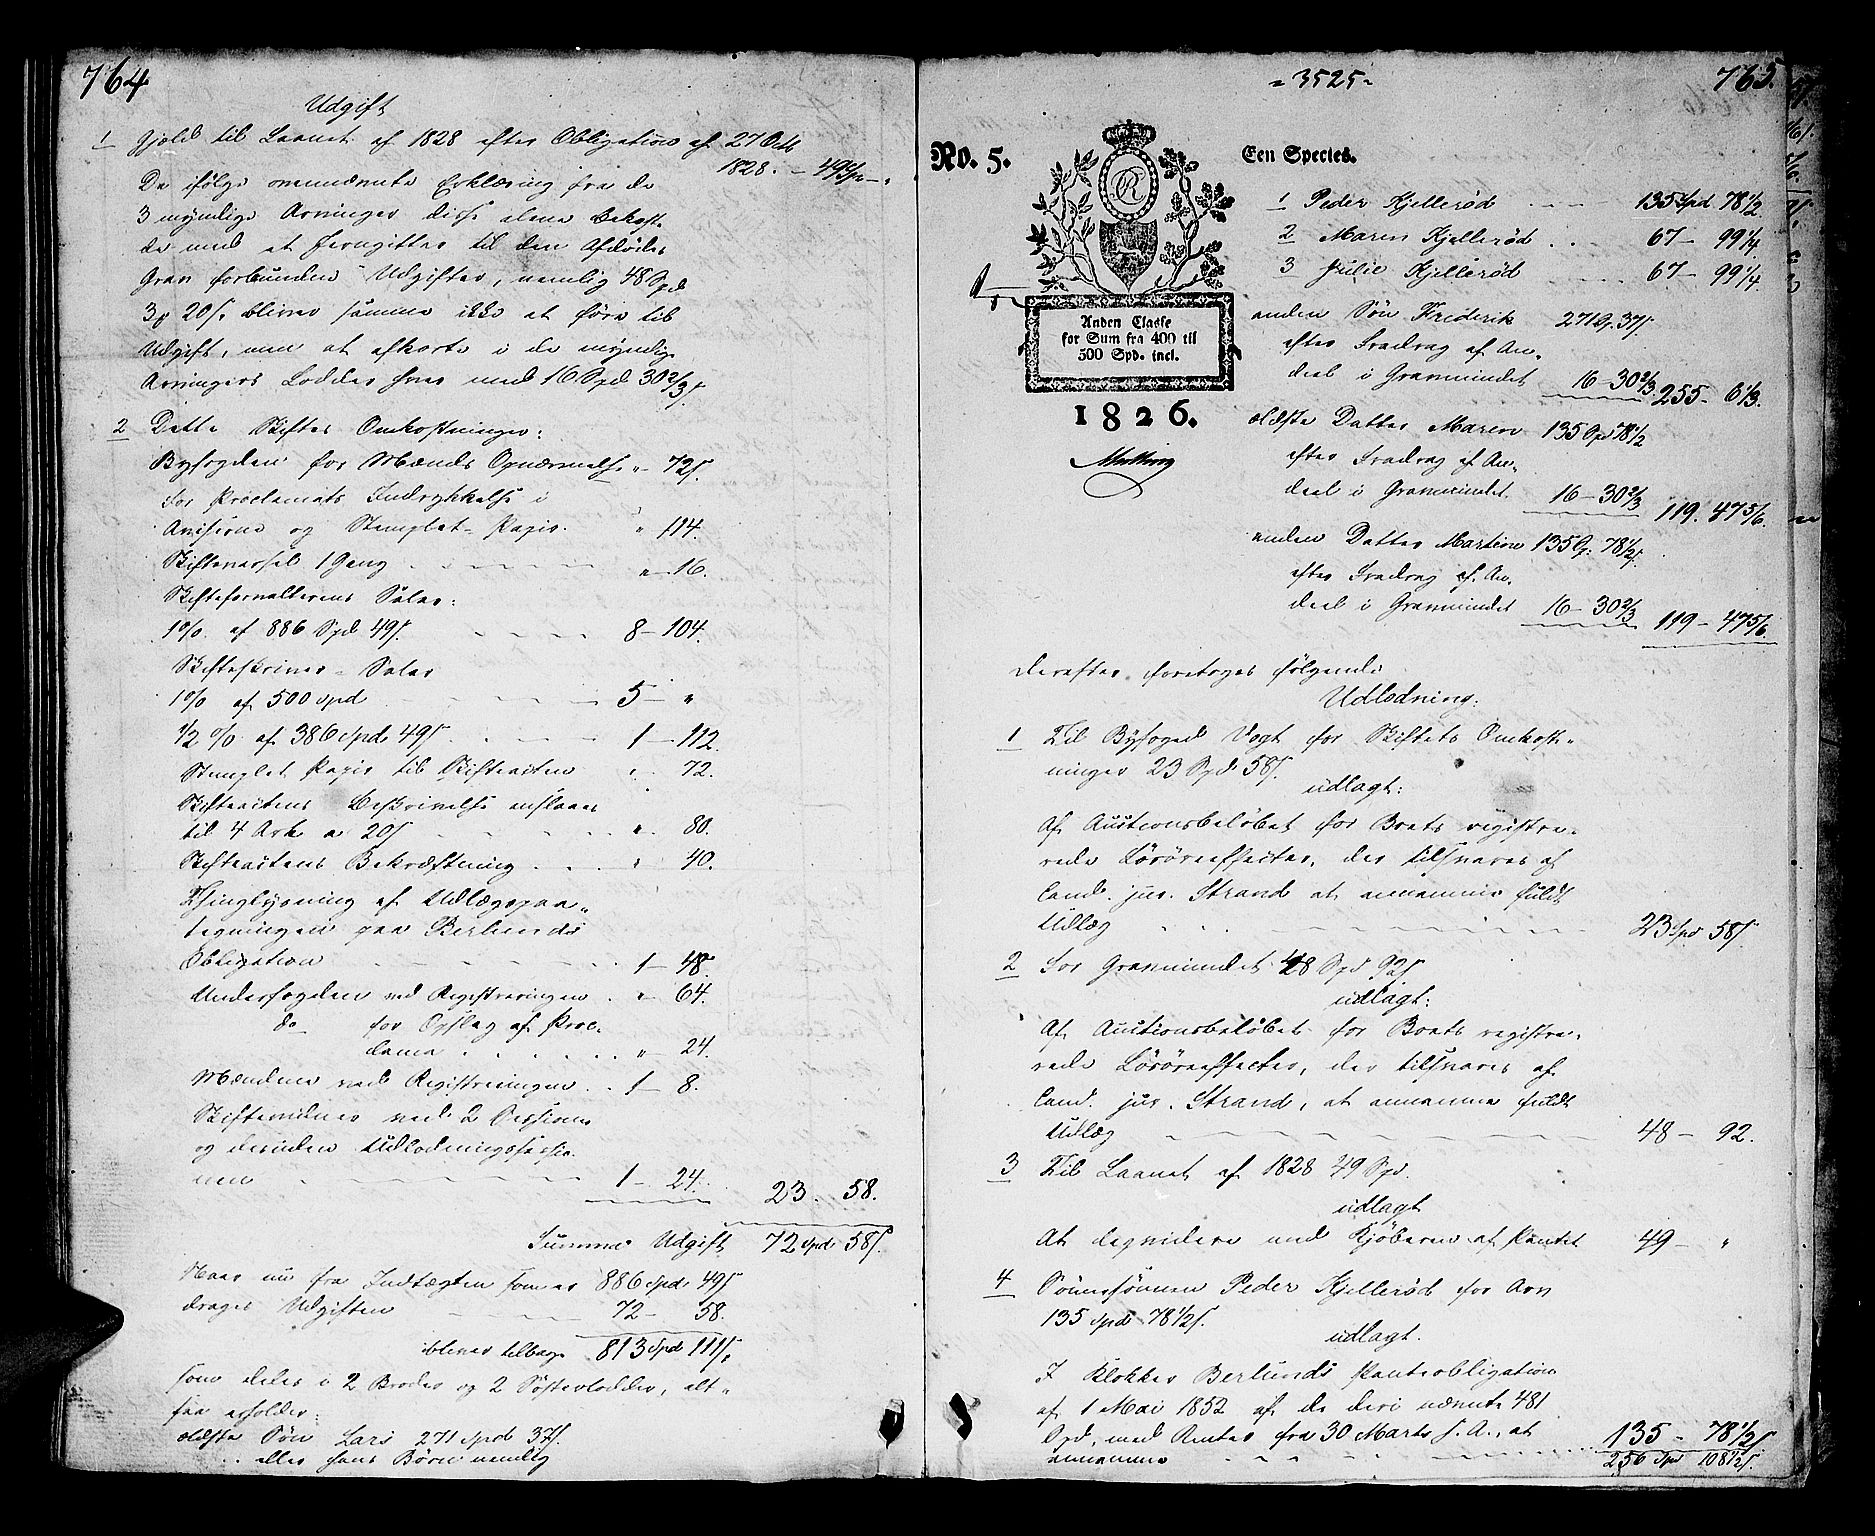 764
Udgift
1 Gjeld til Laanet af 1828 efter Obligation af 27 Octb
1828. - 49 Spd - "
Da ifølge ommeldte Erklæring fra de
3 myndige Arvinger disse alene bekoste
de med at

til den Afdødes
Grav forbundne Udgifter, nemlig 48 Spd
3 20 s. bliver samme ikke at føre til
Udgift, men at afkorte i de myndige
Arvingers Lodder hver med 16 Spd 30 2/3 s.
2 Dette Skiftes Omkostninger:
Byfogden for Mænds Opnævnelse " - 72 s.
For Proclamats Indrykkelse i
Aviserne og Stemplet Papir. " 114.
Skiftevarsel 1 Gang " - 16.
Skifteforvalterens Salar:
1 % af 886 Spd 49 s. 8 - 104.
Skifteskriver-Salar
1 % af 500 Spd 5 - "
1/2 % af 386 Spd 49 s. 1 - 112.
Stemplet Papir til Skifteacten " 72.
Skifteactens Beskrivelse anslaaes
til 4 Ark a 20 s " 80.
Skifteactens Bekræftning " 40.
Thinglysning af Udlægspaa-
tegningen paa Berlunds
Obligation 1 - 48.
Underfogden ved Registreringen " - 64.
do for Opslag af Proc-
lama " - 24.
Mændene ved Registreringen 1 - 8.
Skiftevidner ved 2 Sessioner
og desuden Udlodningssessio-
nen 1 - 24. 23 - 58.
Summa Udgift 72 Spd 58 s.
Naar nu fra Indtægten somer 886 Spd 49 s
drages Udgiften 72 - 58.
bliver tilbage 813 Spd 111 s.
som deles i 2 Broder og 2 Søsterlodder, alt-
saa erholder:
ældste Søn Lars 271 Spd 37 s.
eller hans Børn nemlig
- 3525 -
765.
No. 5.
Een Species.
Anden Classe
for Sum fra 400 til
500 Spd. incl.
1826.
1 Peder Kjellerød 135 Spd 78 1/2
2 Maren Kjellerød 67 - 99 1/4
3 Julie Kjellerød 67 - 99 1/4
anden Søn Frederik 271 Sp. 37 s.
efter Fradrag af An-
deel i Gravmindet 16 - 30 2/3 255 - 6 1/3.
ældste Datter Maren 135 Spd 78 1/2
efter Fradrag af An-
deel i Gravmindet 16 - 30 2/3 119. 47 5/6.
anden Datter Martine 135 Sp. 78 1/2 s.
efter Fradrag af An-
deel i Gravmindet 16 - 30 2/3 119 - 47 5/6
Derefter foretoges følgende
Udlodning:
1 Til Byfoged Vogt for Skiftets Omkost-
ninger 23 Spd 58 s.
udlagt:
Af Auctionsbeløbet for Boets registre-
rede Løsøreeffecter, der tilsvares af
Cand. jur. Strand at annamme fuldt
Udlæg 23 Spd 58 s.
2 For Gravmindet 48 Spd 92 s
udlagt:
Af Auctionsbeløbet for Boets registre-
rede Løsøreeffecter, der tilsvares af
Cand. jur. Strand, at annamme fuldt
Udlæg 48 - 92.
3 Til Laanet af 1828 49 Spd.
udlagt
At liqvidere med Kjøberen af Pantet 49 - "
4 Sønnesønnen Peder Kjellerød for Arv
135 Spd 78 1/2 s.
udlagt.
I Klokker Berlunds Panteobligation
af 1 Mai 1852 af de deri nævnte 481
Spd, med Renter fra 30 Marts f. A., at
annamme 135 - 78 1/2 s.
256 Spd 108 1/2 s.